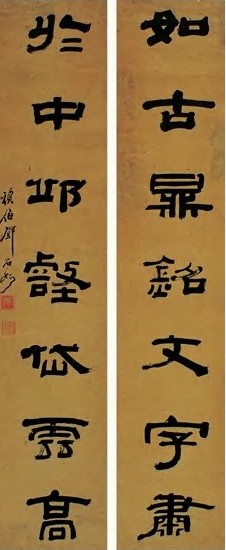 如古鼎銘文字肅
於中邱壑岱雲高
頑伯鄧石如